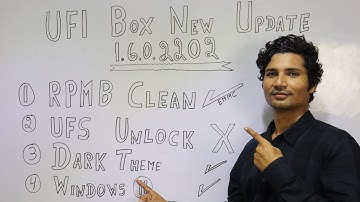 UFI BOX NEW UPDATE
1.6.0.2202
1 RPMB CLEAN EMMC
2 UFS UNLOCK X
3 DARK THEME
4 WINDOWS 11